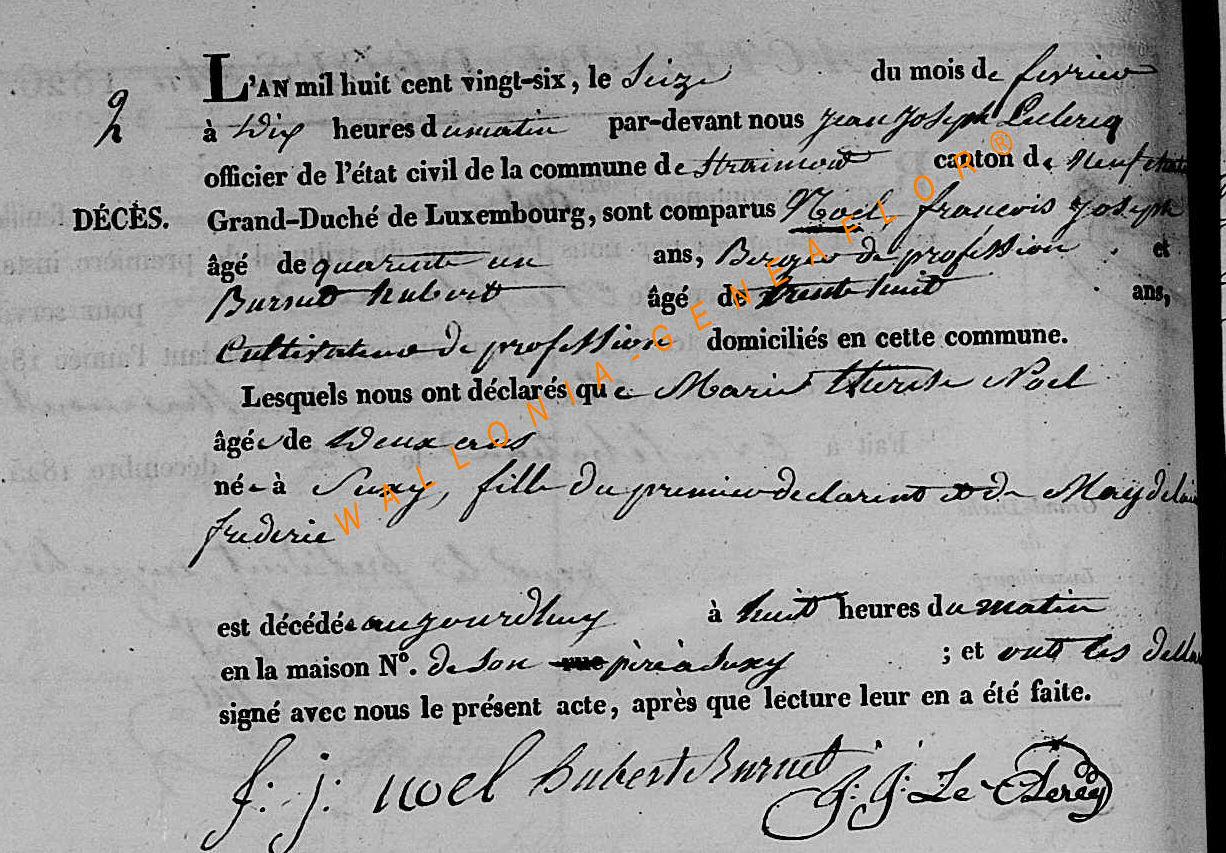 L'AN mil huit cent vingt-six, le Seize du mois de fevrier
2
à Dix heures du matin par-devant nous Jean Joseph Leclercq
officier de l'état civil de la commune de Straimont canton de Neufchate
DÉCÈS. Grand-Duché de Luxembourg, sont comparus Noel françois Joseph
âgé de quarente un ans, Berger de profession et
Burnet hubert âgé de trente huit ans,
Cultivateur de profession domiciliés en cette commune.
Lesquels nous ont déclarés que Marie therese Noel
âgée de Deux ans
née à Suxy, fille du premier declarant et de Magdelaine
frederic
est décédée aujourdhuy à huit heures du matin
en la maison N°. de son rue père à Suxy ; et ont les
signé avec nous le présent acte, après que lecture leur en a été faite.
f: j: noel hubert Burnet J: J: Le Clercq
WALLONIA-GENEAFLOR®